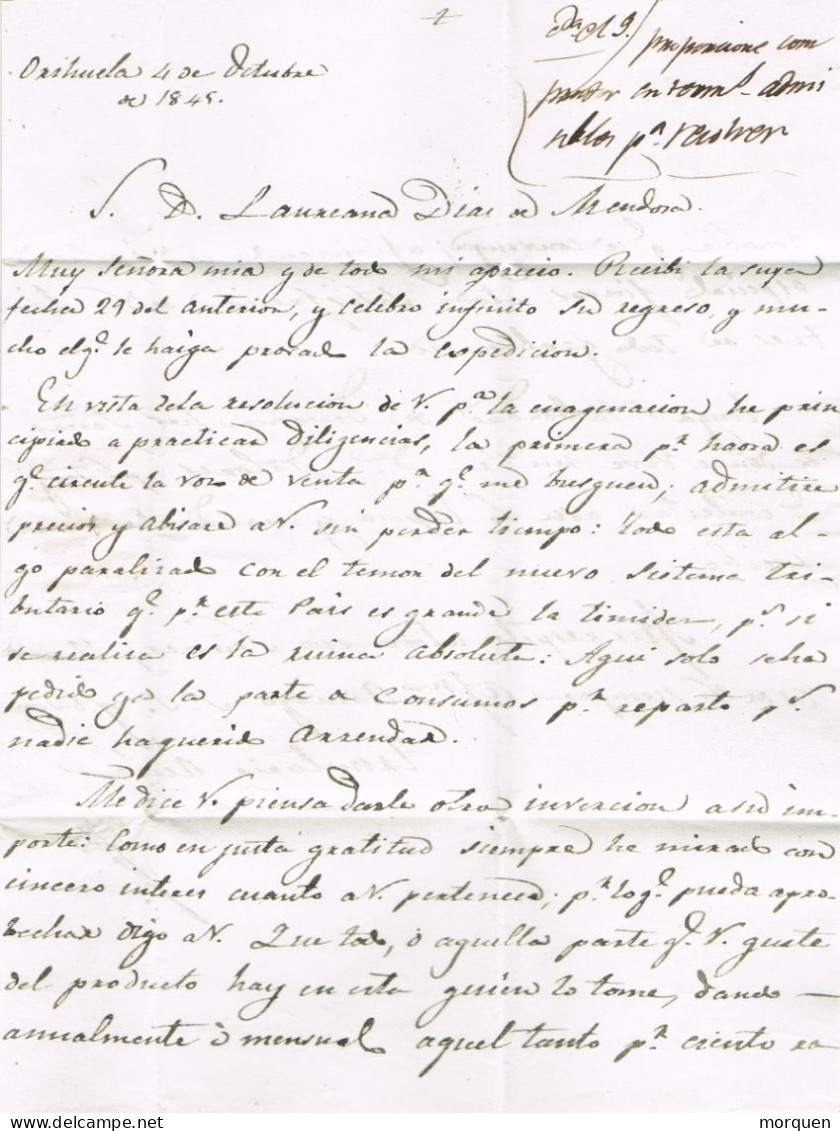 Orihuela 4 de Octubre
de 1845.
proporcione com
admi
pª.
S. D. Laureana Dias de Mendosa.
Muy Señora mia y de todo mi aprecio. Recibi la suya
fecha 29 del anterior, y celebro infinito su regreso, y mu-
cho el qᵉ. le haiga provado la expedicion.
En vista dela resolucion de V. pª la enagenacion he prin
cipiado a practicar diligencias, la primera pʳ haora es
qᵉ. circule la voz de venta pª qᵉ. me busquen; admitire
precios y abisare a V. sin perder tiempo: todo esta al-
go paralizado con el temor del nuevo sistema tri-
butario qᵉ. pʳ este Pais es grande la timidez, pˢ. si
se realiza es la ruina absoluta: Aqui solo seha
pedido ya la parte de Consumos pʳ reparto pˢ.
nadie haquerido arrendar.
Me dice V. piensa darle otra invercion a su im-
porte: Como en justa gratitud siempre he mirado con
cincero interes cuanto a V. pertenece; pʳ lo qᵉ. pueda apro
bechar digo a V. Que todo, o aquella parte qᵉ. V. guste
del producto hay en esta quien lo tome, dando
anualmente ò mensual aquel tanto pʳ ciento ra
morquen